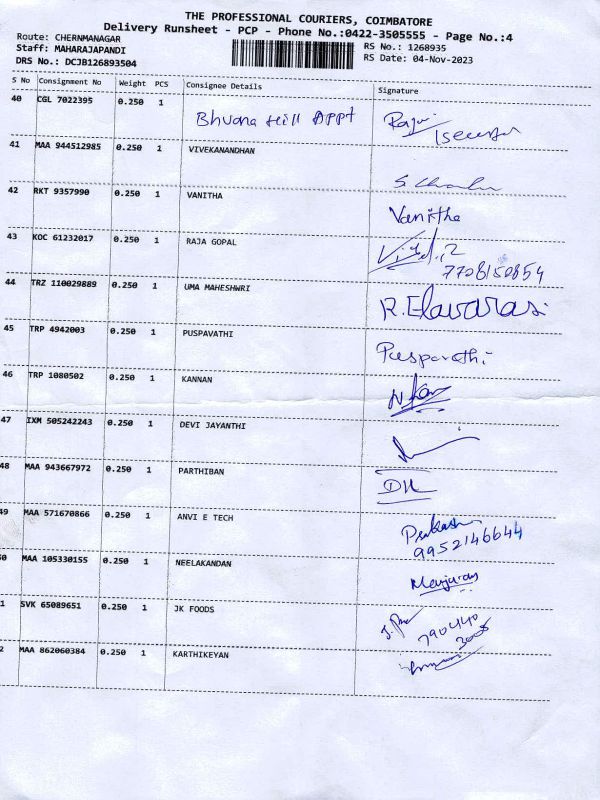 THE PROFESSIONAL COURIERS, COIMBATORE
Delivery Runsheet - PCP - Phone No.:0422-3505555 - Page No.:4
Route: CHERNMANAGAR
RS No.: 1268935
Staff: MAHARAJAPANDI
RS Date: 04-Nov-2023
DRS No.: DCJB126893504
S No Consignment No Weight PCS Consignee Details Signature
40 CGL 7022395 0.250 1 Bhuvana Hill APPt Raju
41 MAA 944512985 0.250 1 VIVEKANANDHAN
42 RKT 9357990 0.250 1 VANITHA Vanitha
43 KOC 61232017 0.250 1 RAJA GOPAL
7708150854
44 TRZ 110029889 0.250 1 UMA MAHESHWRI R. Elavarasi
45 TRP 4942003 0.250 1 PUSPAVATHI Pusparathi
46 TRP 1080502 0.250 1 KANNAN
47 IXM 505242243 0.250 1 DEVI JAYANTHI
48 MAA 943667972 0.250 1 PARTHIBAN
49 MAA 571670866 0.250 1 ANVI E TECH Prakash
9952146644
0 MAA 105330155 0.250 1 NEELAKANDAN
1 SVK 65089651 0.250 1 JK FOODS 790440
3008
2 MAA 862060384 0.250 1 KARTHIKEYAN